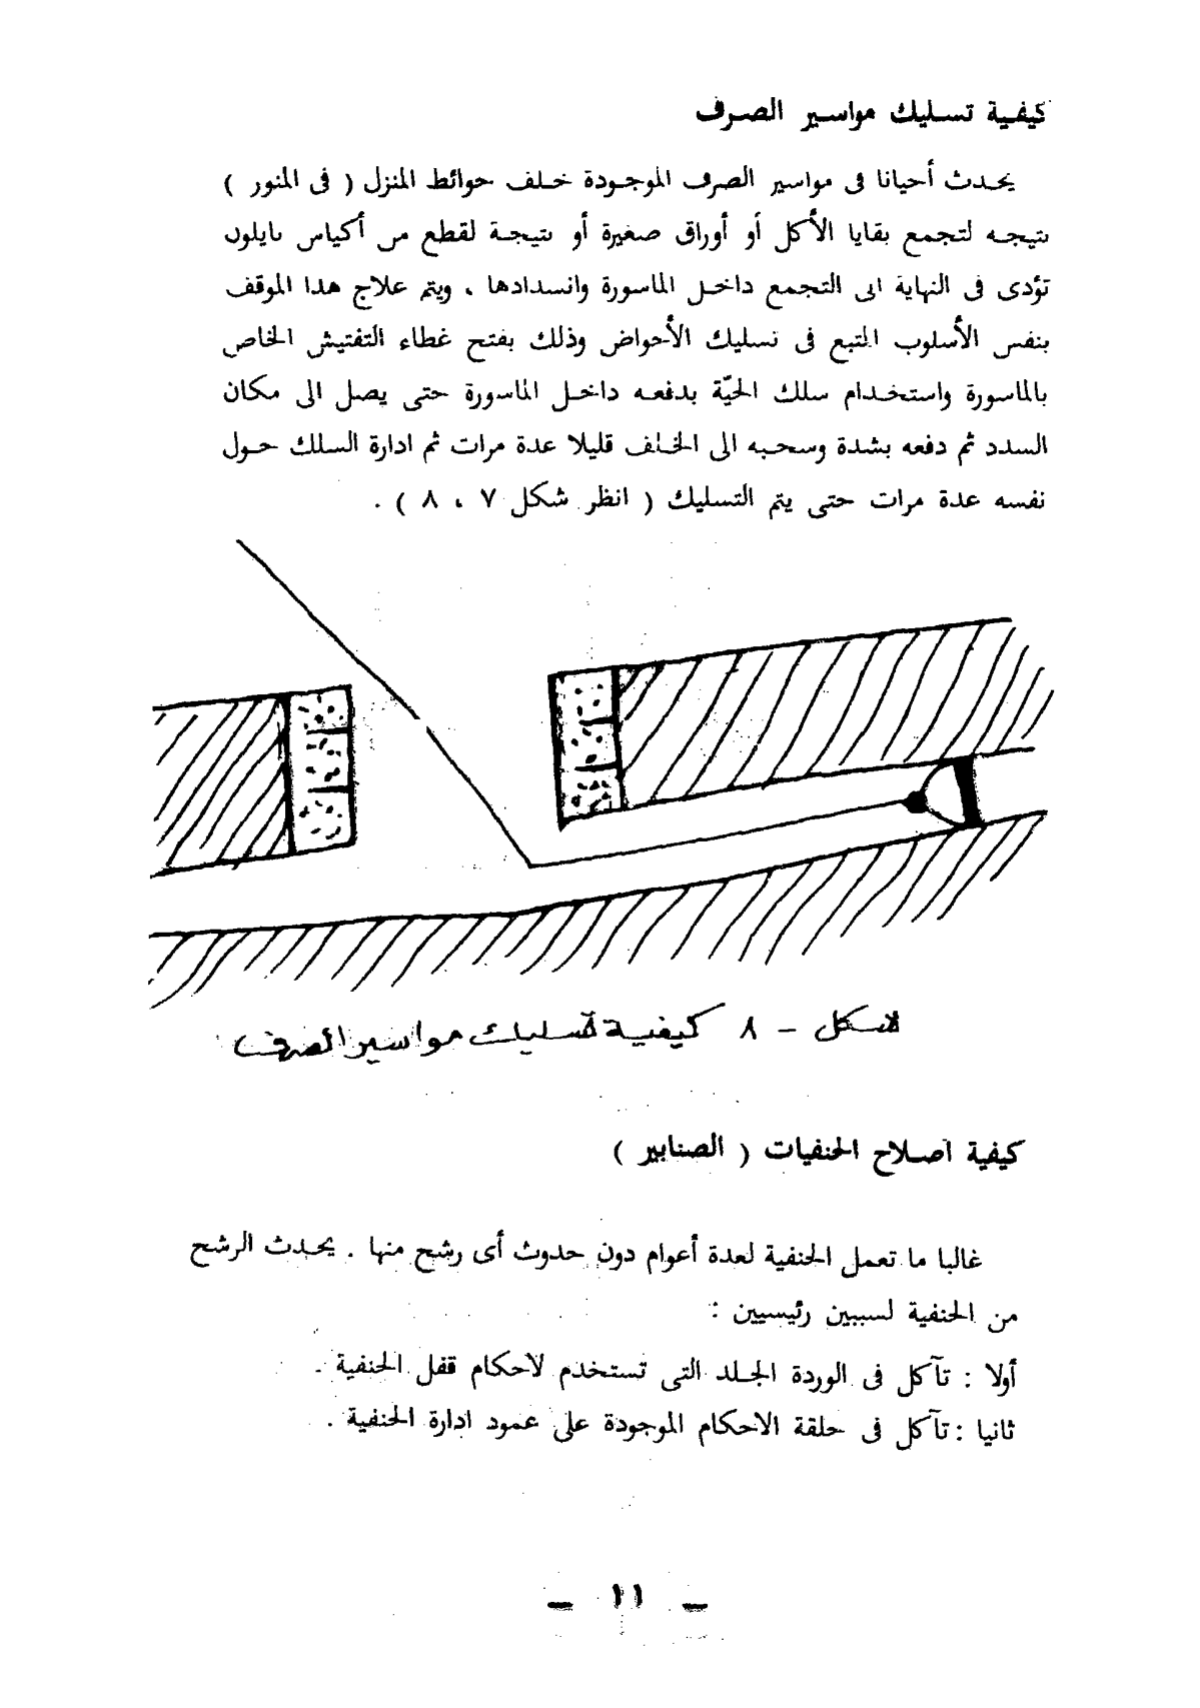 كيفية تسليك مواسير الصرف
يحدث أحيانا فى مواسير الصرف الموجودة خلف حوائط المنزل ( فى المنور )
نتيجه لتجمع بقايا الأكل أو أوراق صغيرة أو نتيجة لقطع من أكياس نايلون
تؤدى فى النهاية الى التجمع داخل الماسورة وانسدادها ، ويتم علاج هذا الموقف
بنفس الأسلوب المتبع فى تسليك الأحواض وذلك بفتح غطاء التفتيش الخاص
بالماسورة واستخدام سلك الحيّة بدفعه داخل الماسورة حتى يصل الى مكان
السدد ثم دفعه بشدة وسحبه الى الخلف قليلا عدة مرات ثم ادارة السلك حول
نفسه عدة مرات حتى يتم التسليك ( انظر شكل ٧ ، ٨ ) .
شكل - ٨ كيفية تسليك مواسير الصرف
كيفية اصلاح الحنفيات ( الصنابير )
غالبا ما تعمل الحنفية لعدة أعوام دون حدوث أى رشح منها . يحدث الرشح
من الحنفية لسببين رئيسيين :
أولا : تآكل فى الوردة الجلد التى تستخدم لاحكام قفل الحنفية .
ثانيا : تآكل فى حلقة الاحكام الموجودة على عمود ادارة الحنفية .
— ١١ —